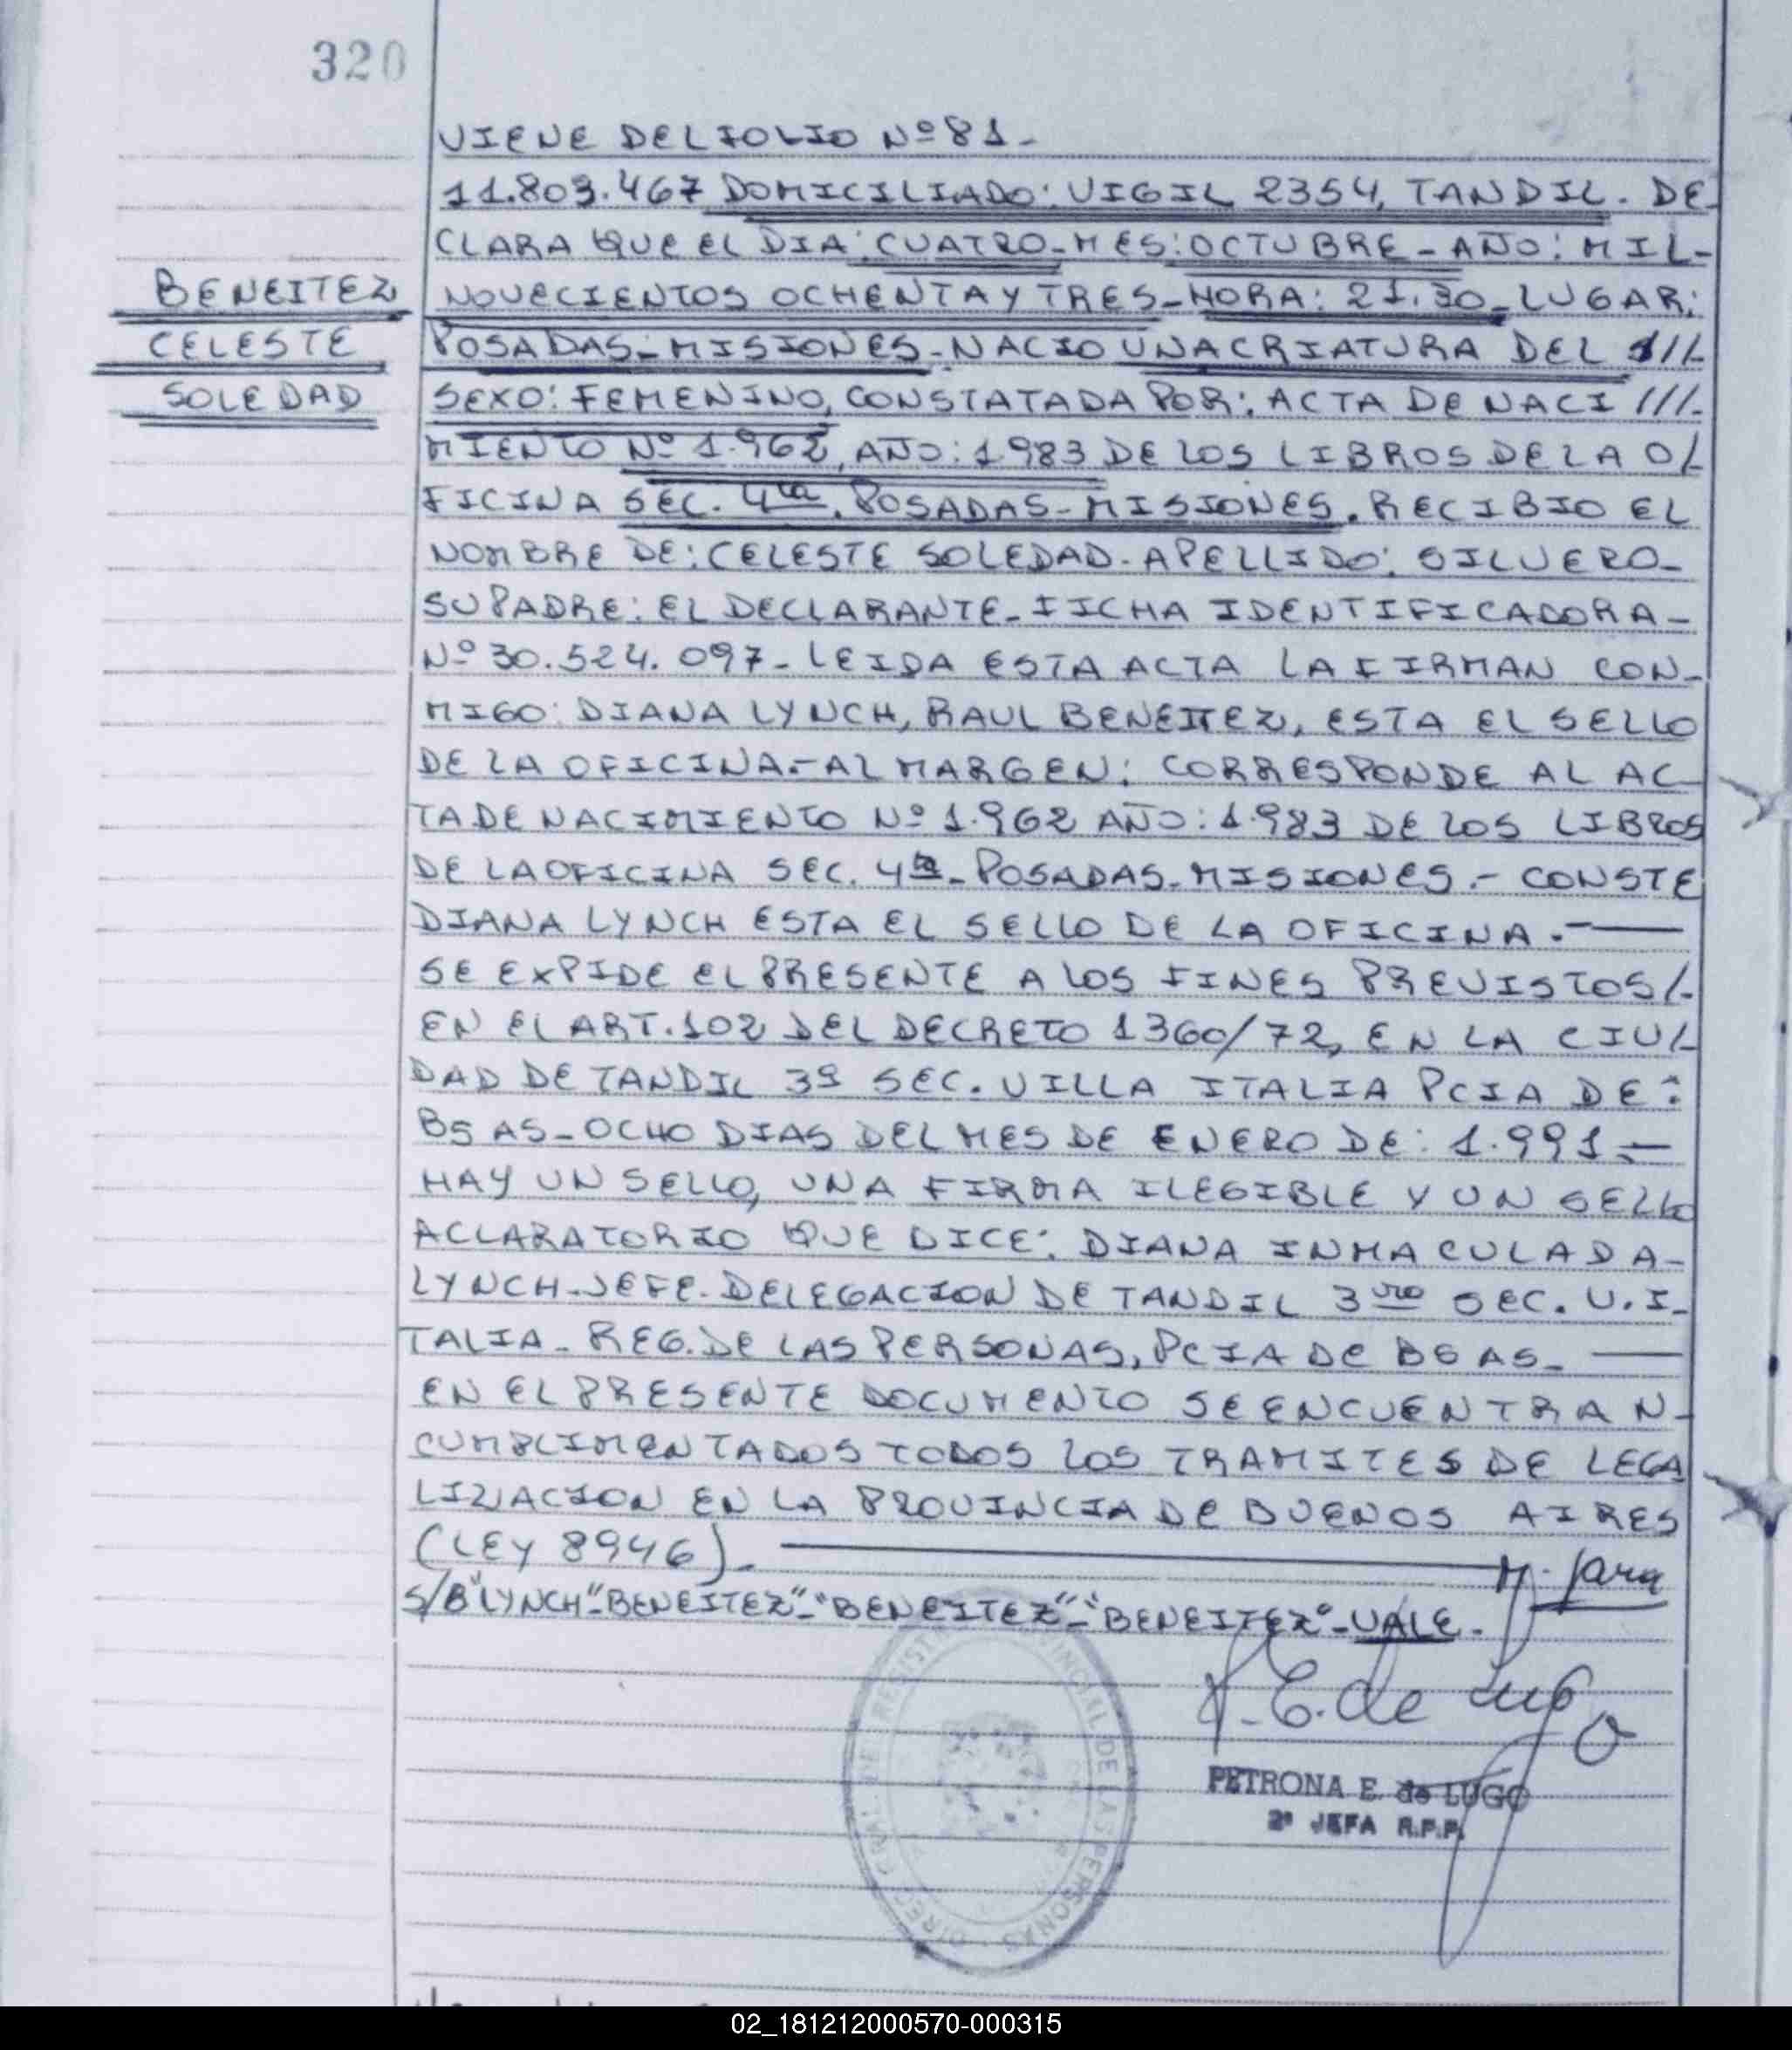 320
VIENE DEL FOLIO Nº 81-
11.803.467 DOMICILIADO: VIGIL 2354, TANDIL. DE-
CLARA QUE EL DIA: CUATRO-MES: OCTUBRE-AÑO: MIL-
BENEITEZ
NOVECIENTOS OCHENTA Y TRES-HORA: 21.30-LUGAR:
CELESTE
POSADAS-MISIONES-NACIO UNA CRIATURA DEL ///-
SOLEDAD
SEXO: FEMENINO, CONSTATADA POR: ACTA DE NACI ///-
MIENTO Nº 1.962, AÑO: 1983 DE LOS LIBROS DE LA O/-
FICINA SEC. 4ta. POSADAS-MISIONES. RECIBIO EL
NOMBRE DE: CELESTE SOLEDAD-APELLIDO: SILVERO-
SU PADRE: EL DECLARANTE-FICHA IDENTIFICADORA-
Nº 30.524.097-LEIDA ESTA ACTA LA FIRMAN CON-
MIGO: DIANA LYNCH, RAUL BENEITEZ, ESTA EL SELLO
DE LA OFICINA.-AL MARGEN: CORRESPONDE AL AC-
TA DE NACIMIENTO Nº 1.962 AÑO: 1.983 DE LOS LIBROS
DE LA OFICINA SEC. 4ta-POSADAS-MISIONES.-CONSTE
DIANA LYNCH ESTA EL SELLO DE LA OFICINA.-
SE EXPIDE EL PRESENTE A LOS FINES PREVISTOS/-
EN EL ART. 102 DEL DECRETO 1360/72, EN LA CIU/-
DAD DE TANDIL 3ª SEC. VILLA ITALIA PCIA DE:
BS AS-OCHO DIAS DEL MES DE ENERO DE: 1.991-
HAY UN SELLO, UNA FIRMA ILEGIBLE Y UN SELLO
ACLARATORIO QUE DICE: DIANA INMACULADA-
LYNCH-JEFE-DELEGACION DE TANDIL 3ra SEC. V. I-
TALIA-REG. DE LAS PERSONAS, PCIA DE BS AS-
EN EL PRESENTE DOCUMENTO SE ENCUENTRAN-
CUMPLIMENTADOS TODOS LOS TRAMITES DE LEGA
LIZACION EN LA PROVINCIA DE BUENOS AIRES
(LEY 8946)-
M. Jara
S/B "LYNCH"-"BENEITEZ"-"BENEITEZ"-"BENEITEZ"-VALE-
P. E. de Lugo
PETRONA E. de LUGO
2ª JEFA R.P.P.
02_181212000570-000315